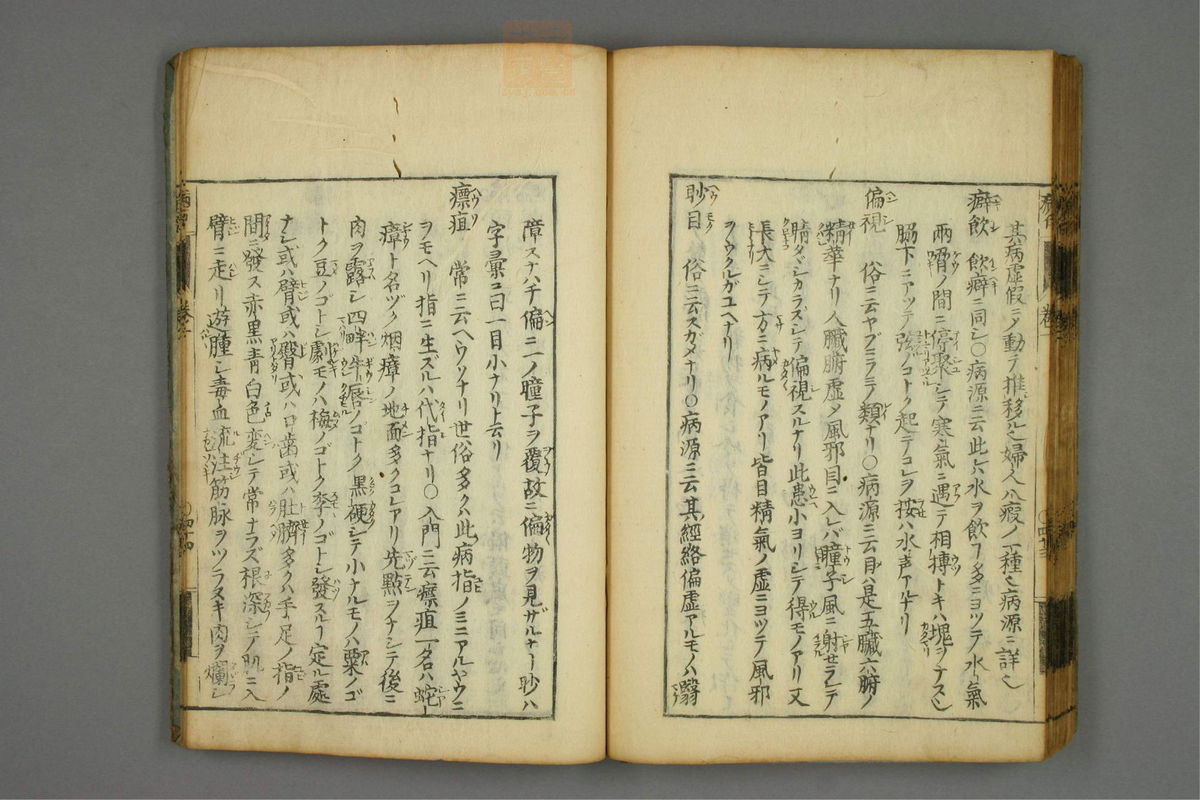 其病虚假ニメ動テ推移ル也婦人八瘕ノ一種也病源ニ詳也
癖飲 飲癖ニ同シ〇病源ニ云此ハ水ヲ飲ヿ多ニヨツテ水氣
両脇ノ間ニ停聚シテ寒氣ニ遇テ相搏トキハ塊ヲナス也
脇下ニアツテ弦ノコトク起テコレヲ按ハ水声アルナリ
偏視 俗ニ云ヤブニラミノ類ナリ〇病源ニ云目ハ是五臓六腑ノ
精華ナリ人臓腑虚メ風邪目ニ入レバ瞳子風ニ射セラレテ
睛タヾシカラズシテ偏視スルナリ此患小ヨリシテ得モノアリ又
長大ニシテ方ニ病ルモノアリ皆目精氣ノ虚ニヨツテ風邪
ヲウクルガユヘナリ
眇目 俗ニ云スガメナリ〇病源ニ云其經絡偏虚アルモノハ翳
障スナハチ偏ニ一ノ瞳子ヲ覆故ニ偏物ヲ見ザルナリ眇ハ
字彙ニ曰一目小ナリト云リ
瘭疽 常ニ云ヘウソナリ世俗多クハ此病指ノミニアルヤウニ
ヲモヘリ指ニ生ズルハ代指ナリ〇入門ニ云瘭疽一名ハ蛇
瘴ト名ヅク烟瘴ノ地面多クコレアリ先點ヲナシテ後ニ
肉ヲ露シ四畔牛唇ノゴトク黒硬シテ小ナルモノハ粟ノゴ
トク豆ノゴトシ劇モノハ梅ノゴトク李ノゴトシ發スルヿ定ル處
ナシ或ハ臂或ハ臀或ハ口歯或ハ肚臍多クハ手足ノ指ノ
間ニ發ス赤黒青白色変シテ常ナラズ根深シテ肌ニ入
臂ニ走リ遊腫シ毒血流注筋脉ヲツラヌキ肉ヲ爛シ